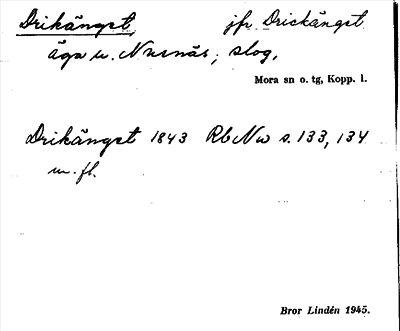 Drikängst, jfr. Drickängst.
äga u. Nusnäs; slog.
Mora sn o. tg, Kopp. l.
Drikängst 1843 RbNw s. 133, 134
m. fl.
Bror Lindén 1945.